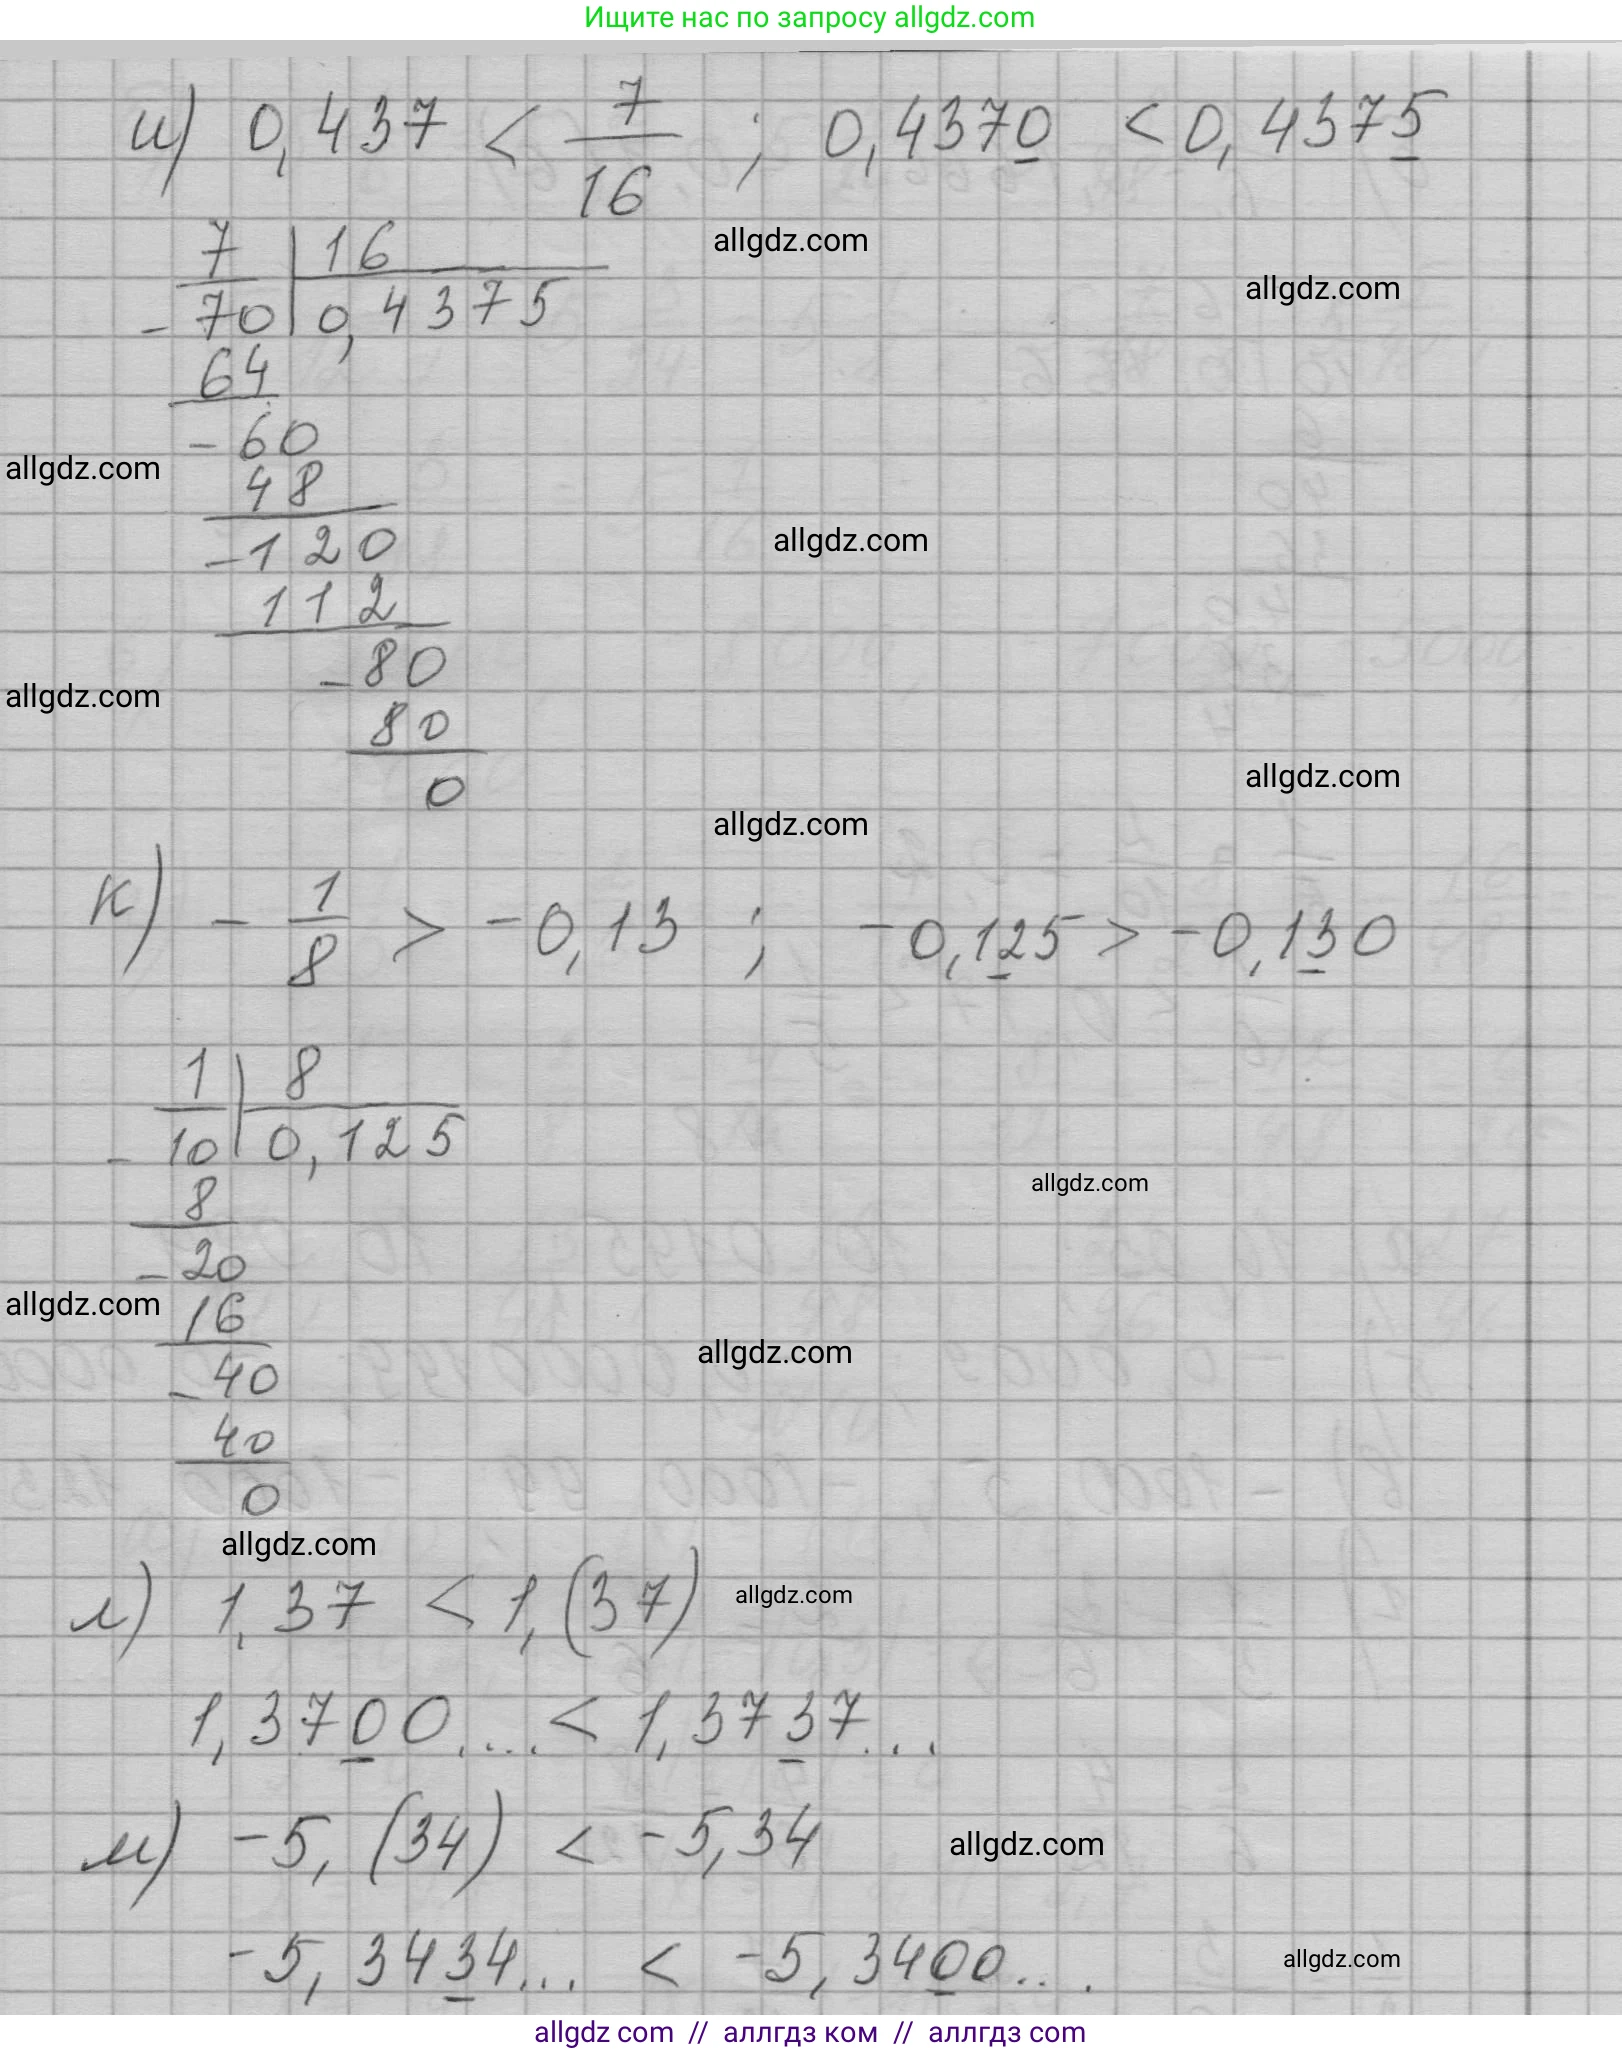 Ищите нас по запросу allgdz.com
и) 0,437 < 7/16 ; 0,4370 < 0,4375
allgdz.com
7 | 16
allgdz.com
- 70 | 0,4375
64
- 60
allgdz.com
48
- 120
allgdz.com
112
- 80
allgdz.com
80
allgdz.com
0
allgdz.com
к) - 1/8 > -0,13 ; -0,125 > -0,130
1 | 8
- 10 | 0,125
allgdz.com
8
- 20
allgdz.com
16
allgdz.com
- 40
40
0
allgdz.com
л) 1,37 < 1,(37)
allgdz.com
1,3700.... < 1,3737...
м) -5,(34) < -5,34
allgdz.com
-5,3434... < -5,3400....
allgdz.com
allgdz com // аллгдз ком // аллгдз com